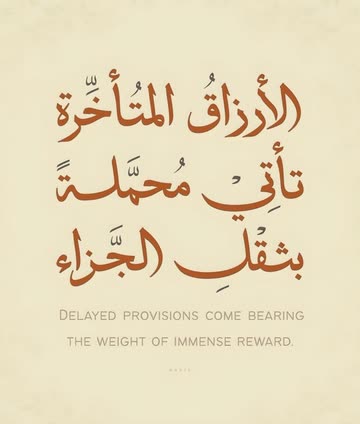 الأرزاقُ المتُأخِّرة
تأتِيْ مُحمَّلةً
بثقْلِ الجَّزاء
DELAYED PROVISIONS COME BEARING
THE WEIGHT OF IMMENSE REWARD.